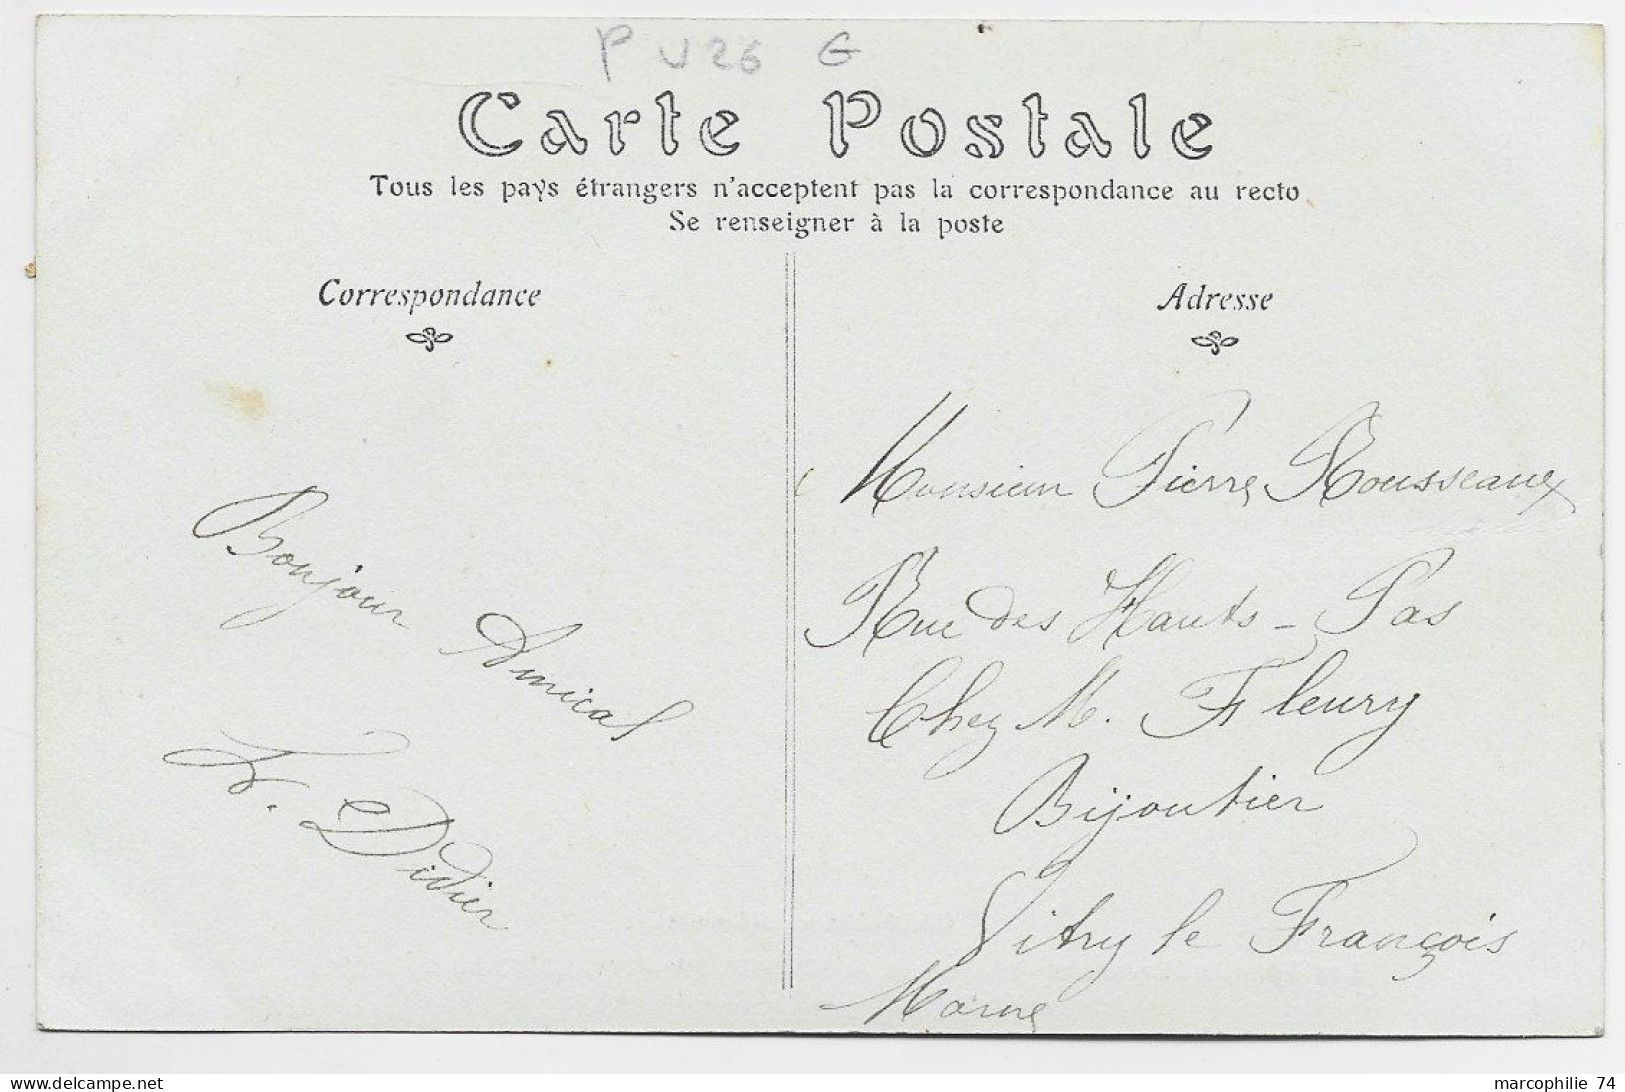 P U 26 G
Carte Postale
Tous les pays étrangers n'acceptent pas la correspondance au recto
Se renseigner à la poste
Correspondance
Adresse
Bonjour Amical
Didier
Monsieur Pierre Rousseaux
Rue des Hauts - Pas
Chez M. Fleury
Bijoutier
Vitry le François
Marne
marcophilie 74